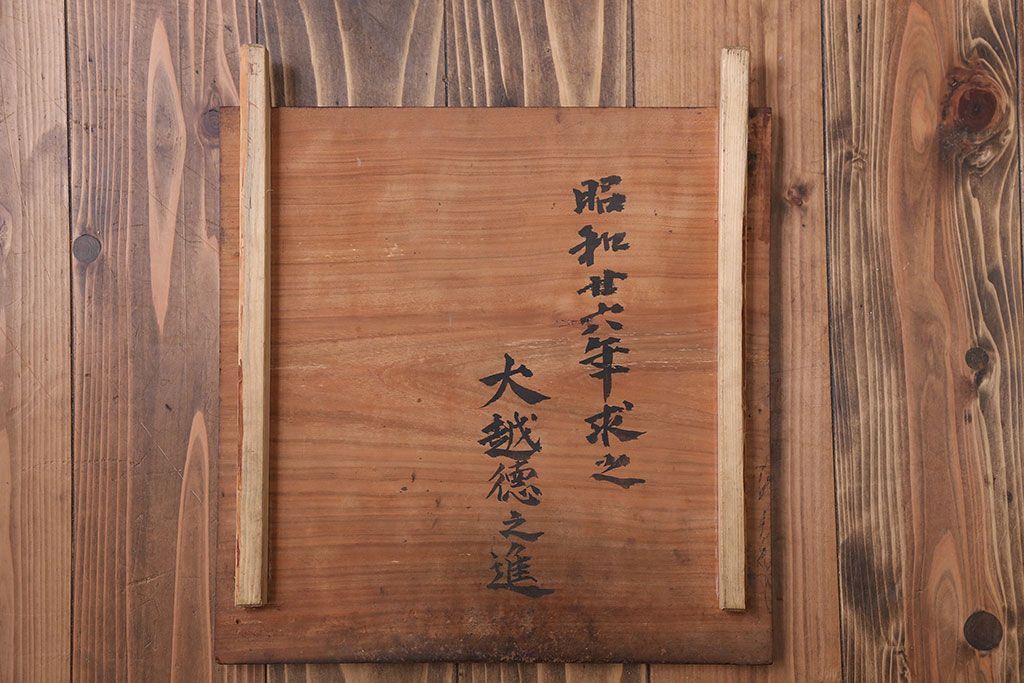 昭和廿六年求之
犬越徳之進